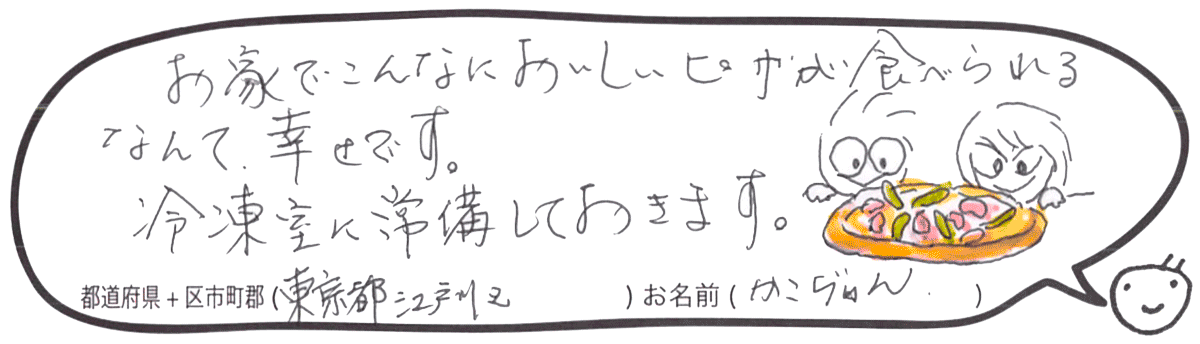 お家でこんなにおいしいピザが食べられる
なんて、幸せです。
冷凍室に常備しておきます。
都道府県+区市町郡(東京都江戸川区)お名前()